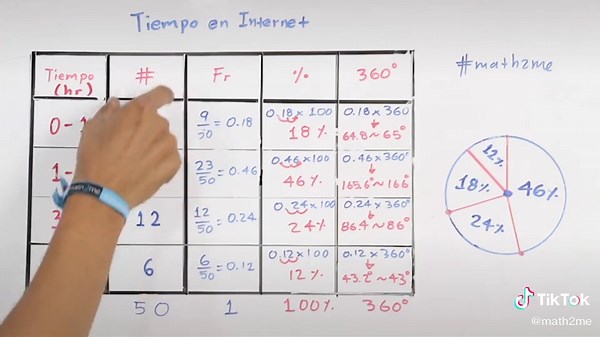 Tiempo en Internet
Tiempo (hr) # Fr % 360°
0-1 9/50 = 0.18 0.18 x 100 18% 0.18 x 360 64.8 ~ 65°
1- 23/50 = 0.46 0.46 x 100 46% 0.46 x 360° 165.6 ~ 166°
3 12 12/50 = 0.24 0.24 x 100 24% 0.24 x 360° 86.4 ~ 86°
6 6/50 = 0.12 0.12 x 100 12% 0.12 x 360° 43.2° ~ 43°
50 1 100% 360°
#math2me
12%
18% 46%
24%
math2me
TikTok
@math2me